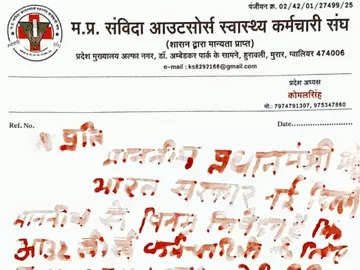 पंजीयन क्र. 02/42/01/27499/25
म.प्र. संविदा आउटसोर्स स्वास्थ्य कर्मचारी संघ
(शासन द्वारा मान्यता प्राप्त)
प्रदेश मुख्यालय अल्फा नगर, डॉ. अम्बेडकर पार्क के सामने, हुरावली, मुरार, ग्वालियर 474006
e-mail : ks8292166@gmail.com
प्रदेश अध्यक्ष
कोमलसिंह
मो.: 7974791307, 975347860
Ref. No. Date
प्रति
माननीय प्रधानमंत्री
भारत सरकार नई दिल्ली
माननीय विनम्र निवेदन है कि
आउट सोर्स कर्मचारियों के